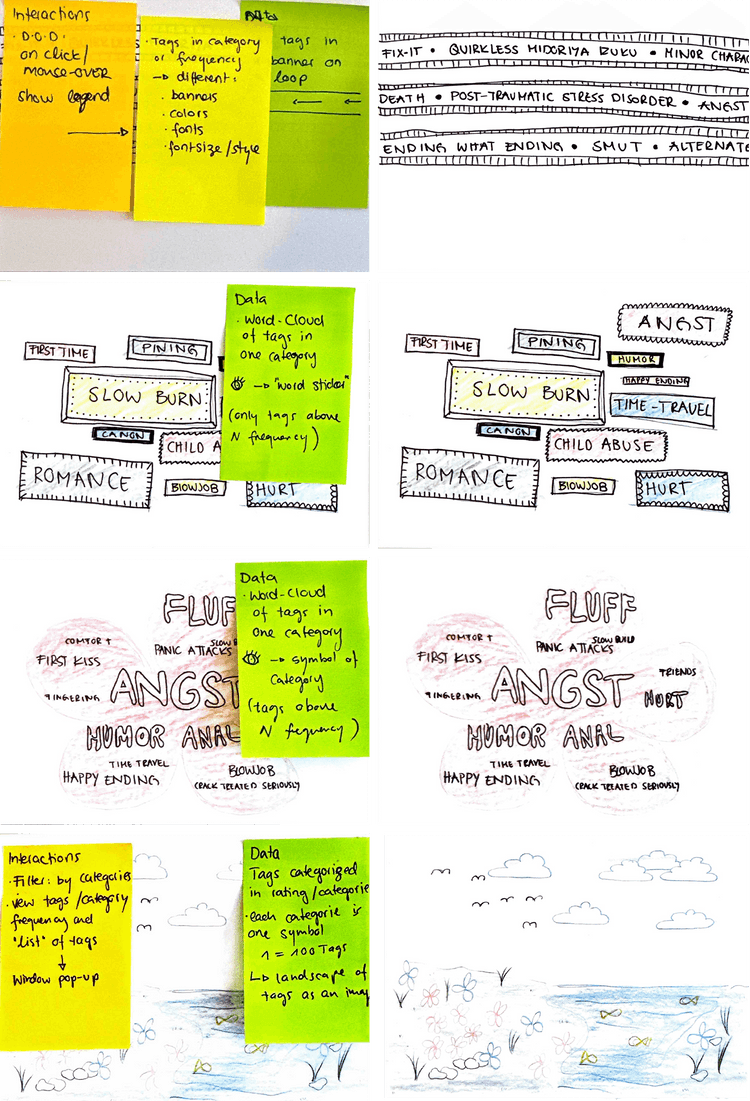 Interactions
• D.O.D.
on click/
mouse-over
show legend
• Tags in category
or frequency
→ different:
• banners
• colors
• fonts
• fontsize/style
Data
tags in
banner on
loop
FIX-IT • QUIRKLESS MIDORIYA IZUKU • MINOR CHARAC
DEATH • POST-TRAUMATIC STRESS DISORDER • ANGST
ENDING WHAT ENDING • SMUT • ALTERNATE
FIRST TIME
PINING
SLOW BURN
CANON
CHILD A
ROMANCE
BLOWJOB
HURT
Data
• Word-Cloud
of tags in
one category
→ "word sticker"
(only tags above
N frequency)
ANGST
FIRST TIME
PINING
HUMOR
HAPPY ENDING
SLOW BURN
TIME-TRAVEL
CANON
CHILD ABUSE
ROMANCE
BLOWJOB
HURT
FLUF
COMFORT
SLOW B
PANIC ATTACKS
FIRST KISS
FINGERING
ANGST
HUMOR ANAL
TIME TRAVEL
HAPPY ENDING
BLOWJOB
CRACK TREATED SERIOUSLY
Data
• Word-Cloud
of tags in
one category
→ symbol of
category
(tags above
N fequency)
FLUFF
COMFORT
SLOW BUILD
PANIC ATTACKS
FIRST KISS
FRIENDS
FINGERING
ANGST
HURT
HUMOR ANAL
TIME TRAVEL
HAPPY ENDING
BLOWJOB
CRACK TREATED SERIOUSLY
Interactions
• Filter: by categories
• view tags/category
frequency and
"list" of tags
↓
Window pop-up
Data
Tags categorized
in rating/categorie
• each categorie is
one symbol
1 = 100 Tags
↳ landscape of
tags as an imag